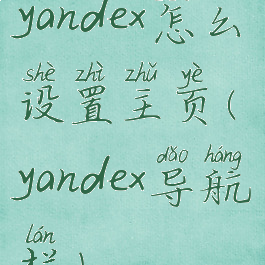 yandex怎么
shè zhì zhǔ yè
设置主页(
dǎo háng
yandex导航
lán
栏)